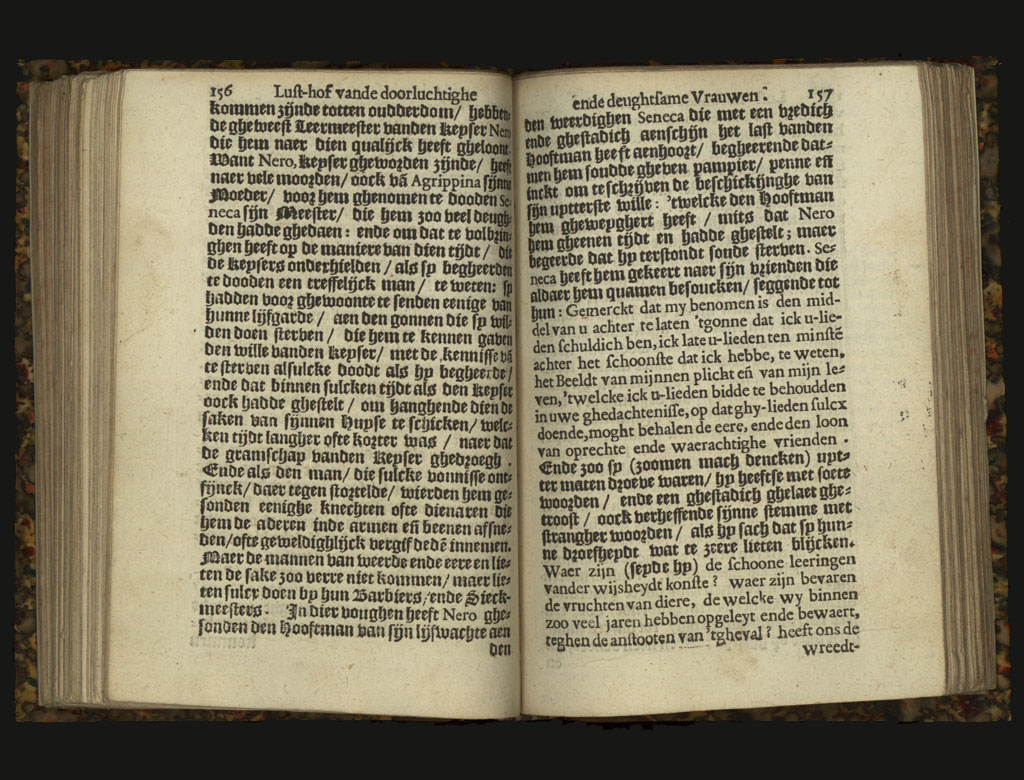 156 Lust-hof vande doorluchtighe
kommen zijnde totten oudderdom/ hebben-
de gheweest Leermeester vanden Keyser Nero
die hem naer dien qualijck heeft gheloont.
Want Nero, Keyser gheworden zijnde/ heeft
naer vele moorden/ oock vā Agrippina sijnne
Moeder/ voor hem ghenomen te dooden Se-
neca sijn Meester/ die hem zoo veel deugh-
den hadde ghedaen: ende om dat te volbrin-
ghen heeft op de maniere van dien tijdt/ die
de Keysers onderhielden/ als sy begheerden
te dooden een treffelijck man/ te weten: sy
hadden voor ghewoonte te senden eenige van
hunne lijfgarde/ aen den gonnen die sy wil-
den doen sterven/ die hem te kennen gaven
den wille vanden Keyser/ met de kennisse vā
te sterven alsulcke doodt als hy begheerde/
ende dat binnen sulcken tijdt als den Keyser
oock hadde ghestelt/ om hanghende dien de
saken van sijnnen Huyse te schicken/ welc-
ken tijdt langher ofte korter was/ naer dat
de gramschap vanden Keyser ghedroegh.
Ende als den man/ die sulcke vonnisse ont-
fijnck/ daer tegen stortelde/ wierden hem ge-
sonden eenighe knechten ofte dienaren die
hem de aderen inde armen eñ beenen affne-
den/ofte geweldighlijck vergif dedē innemen.
Maer de mannen van weerde ende eere en lie-
ten de sake zoo verre niet kommen/ maer lie-
ten sulcx doen by hun Barbiers, ende Sieck-
meesters. In dier voughen heeft Nero ghe-
sonden den Hooftman van sijn lijfwachte aen
den
ende deughtsame Vrauwen. 157
den weerdighen Seneca die met een vredich
ende ghestadich aenschijn het last vanden
Hooftman heeft aenhoort/ begheerende dat-
men hem soudde gheven pampier/ penne eñ
inckt om te schrijven de beschickijnghe van
sijn uptterste wille: 'twelcke den Hooftman
hem gheweyghert heeft/ mits dat Nero
hem gheenen tijdt en hadde ghestelt; maer
begeerde dat hy terstondt soude sterven. Se-
neca heeft hem gekeert naer sijn vrienden die
aldaer hem quamen besoucken/ seggende tot
hun: Gemerckt dat my benomen is den mid-
del van u achter te laten 'tgonne dat ick u-lie-
den schuldich ben, ick late u-lieden ten minstē
achter het schoonste dat ick hebbe, te weten,
het Beeldt van mijnnen plicht eñ van mijn le-
ven, 'twelcke ick u-lieden bidde te behoudden
in uwe ghedachtenisse, op dat ghy-lieden sulcx
doende, moght behalen de eere, ende den loon
van oprechte ende waerachtighe vrienden.
Ende zoo sy (zoomen mach dencken) upt-
ter maten droeve waren/ hy heeftse met soete
woorden/ ende een ghestadich ghelaet ghe-
troost/ oock verheffende sijnne stemme met
strangher woorden/ als hy sach dat sy hun-
ne droefheydt wat te zeere lieten blijcken.
Waer zijn (seyde hy) de schoone leeringen
vander wijsheydt konste? waer zijn bevaren
de vruchten van diere, de welcke wy binnen
zoo veel jaren hebben opgeleyt ende bewaert,
teghen de anstooten van 'tgheval? heeft ons de
wreedt-